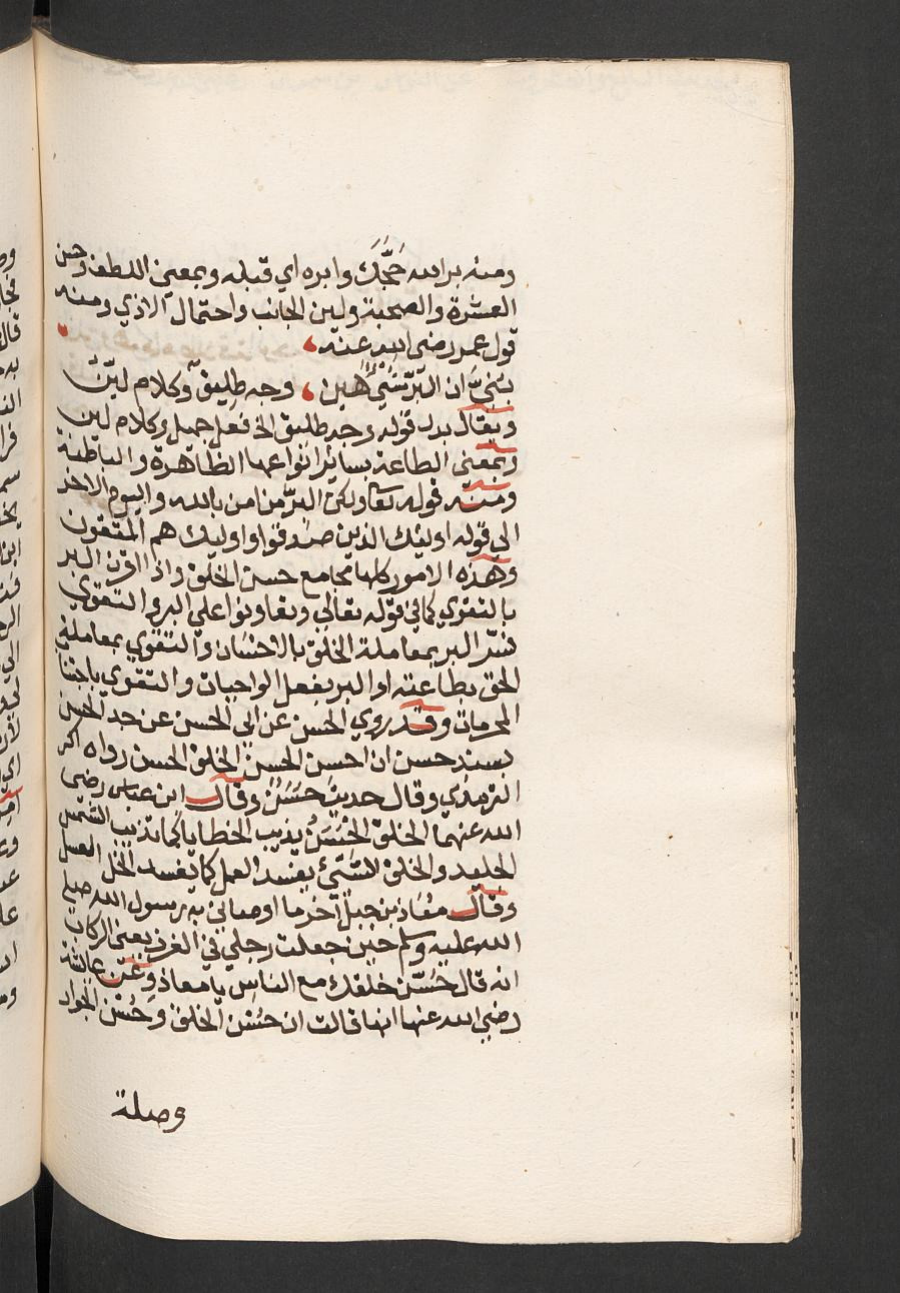 ومنه بر الله حَجَّكَ وابره اي قبله وبمعني اللطف وحسن
العشرة والصحبة ولين الجانب واحتمال الاذي ومنه
قول عمر رضي الله عنه
بُنَيَّ ان البَرَّ شَيْءٌ هَين وجه طليق وكلام ليّنٌ
ويقال بدل قوله وجه طليق الخ فعل جميل وكلام لين
وبمعني الطاعة بسائر انواعها الظاهرة والباطنة
ومنه قوله تعا ولكن البرّ من امن بالله واليوم الاخر
الي قوله اوليك الذين صدقوا واوليك هم المتقون
وهذه الامور كلها مجامع حسن الخلق واذا اقرن البر
بالتقوي كما في قوله تعالي وتعاونوا علي البر والتقوي
فسّر البر بمعاملة الخلق بالاحسان والتقوي بمعاملة
الحق بطاعته او البر بفعل الواجبات والتقوي باجتناب
المحرمات وقد روي الحسن عن ابي الحسن عن جد الحسن
بسند حسن ان احسن الحسن الخلق الحسن رواه
الترمذي وقال حديث حَسَنٌ وقال ابن عباس رضي
الله عنهما الخلق الحَسَنُ يذيب الخطايا كما تذيب الشمس
الجليد والخلق السّيّئ يفسد العمل كما يفسد الخل العسل
وقال معاذ بن جبل اخر ما اوصاني به رسول الله صلي
الله عليه وسلم حين جعلت رجلي في الغرز يعني الركاب
انه قال حَسّن خلقك مع الناس يا معاذ وعن عائشة
رضي الله عنها انها قالت ان حُسْن الخلق وحُسْن الجوار
وصلة